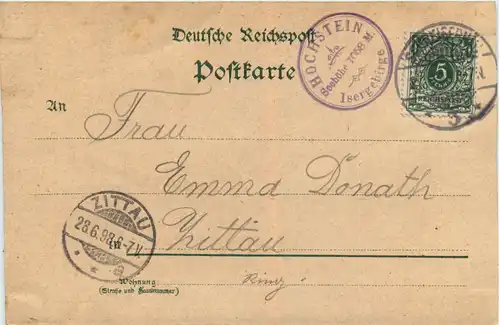 Deutsche Reichspost
Postkarte
HOCHSTEIN
Seehöhe 1058 M.
Isergebirge
5
REICHSPOST
An
Frau
Emma Donath
Zittau
ZITTAU
28.6.98. 6-7V.
* * a
in
Wohnung
(Straße und Hausnummer)